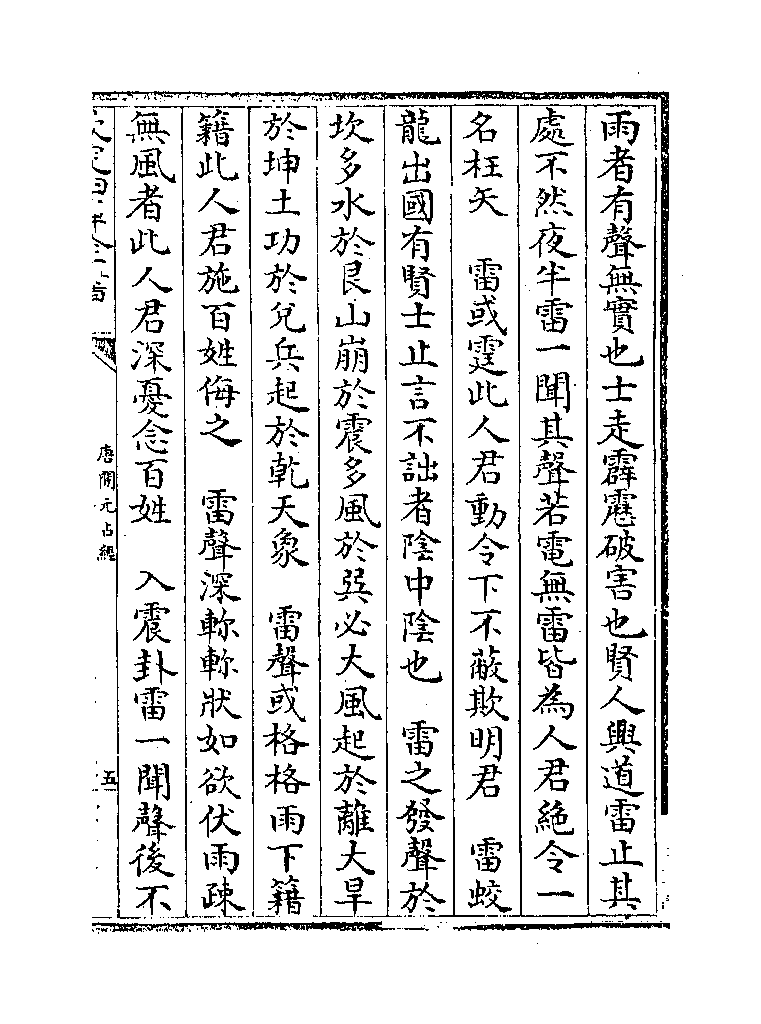 雨者有聲無實也士走霹靂破害也賢人興道雷止其
處不然夜半雷一聞其聲若電無雷皆為人君絶令一
名枉矢　雷或霆此人君動令下不蔽欺明君　雷蛟
龍出國有賢士止言不詘者陰中陰也　雷之發聲於
坎多水於艮山崩於震多風於巽必大風起於離大旱
於坤土功於兌兵起於乾天象　雷聲或格格雨下籍
籍此人君施百姓侮之　雷聲深軫軫狀如欲伏雨疎
無風者此人君深憂念百姓　入震卦雷一聞聲後不
唐開元占經
五